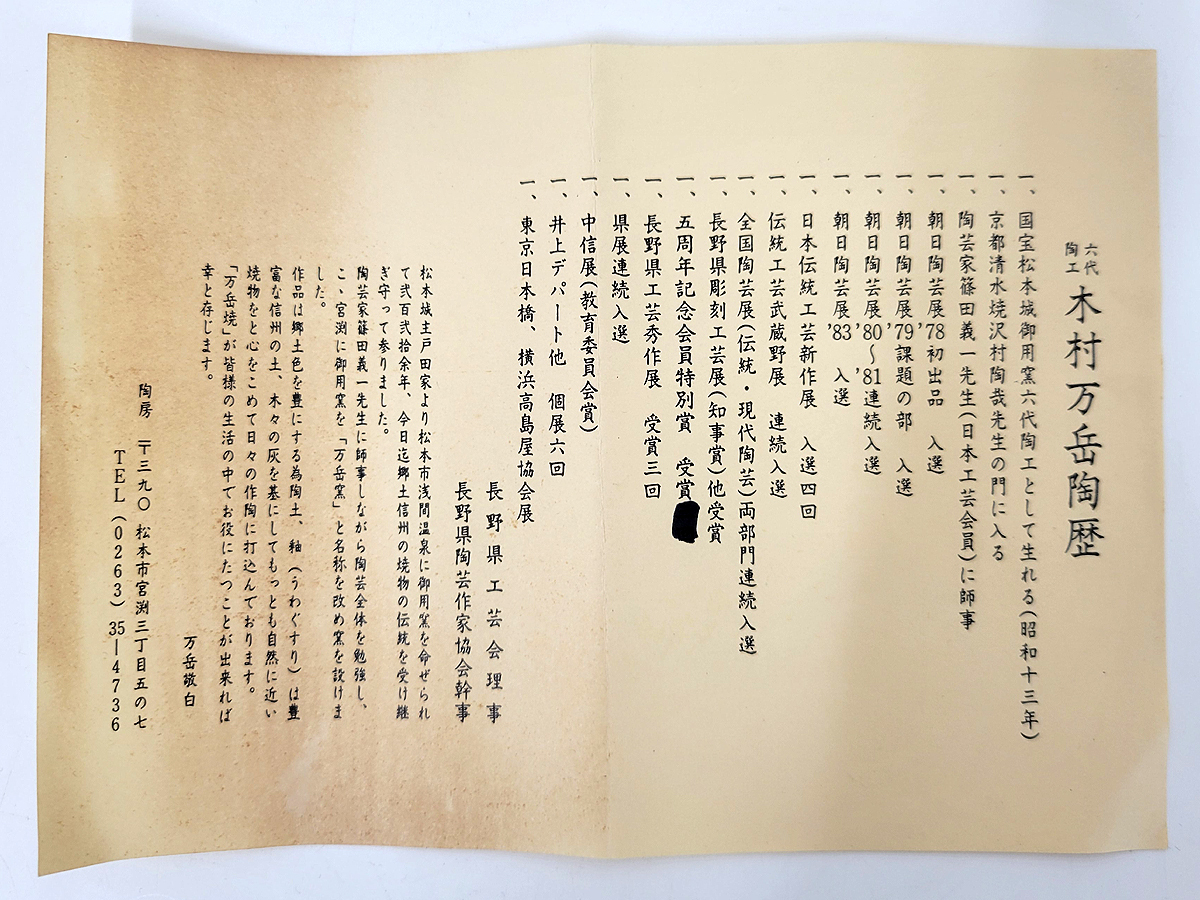 六代
陶工
木村万岳陶歴
一、国宝松本城御用窯六代陶工として生れる(昭和十三年)
一、京都清水焼沢村陶哉先生の門に入る
一、陶芸家篠田義一先生(日本工芸会員)に師事
一、朝日陶芸展'78初出品 入選
一、朝日陶芸展'79課題の部 入選
一、朝日陶芸展'80〜'81連続入選
一、朝日陶芸展'83 入選
一、日本伝統工芸新作展 入選四回
一、伝統工芸武蔵野展 連続入選
一、全国陶芸展(伝統・現代陶芸)両部門連続入選
一、長野県彫刻工芸展(知事賞)他受賞
一、五周年記念会員特別賞 受賞
一、長野県工芸秀作展 受賞三回
一、県展連続入選
一、中信展(教育委員会賞)
一、井上デパート他 個展六回
一、東京日本橋、横浜高島屋協会展
長野県工芸会理事
長野県陶芸作家協会幹事
松本城主戸田家より松本市浅間温泉に御用窯を命ぜられ
て弐百弐拾余年、今日迄郷土信州の焼物の伝統を受け継
ぎ守って参りました。
陶芸家篠田義一先生に師事しながら陶芸全体を勉強し、
こゝ宮渕に御用窯を「万岳窯」と名称を改め窯を設けま
した。
作品は郷土色を豊にする為陶土、釉(うわぐすり)は豊
富な信州の土、木々の灰を基にしてもっとも自然に近い
焼物をと心をこめて日々の作陶に打込んでおります。
「万岳焼」が皆様の生活の中でお役にたつことが出来れば
幸と存じます。
万岳敬白
陶房 〒三九〇 松本市宮渕三丁目五の七
TEL(0263)35-4736